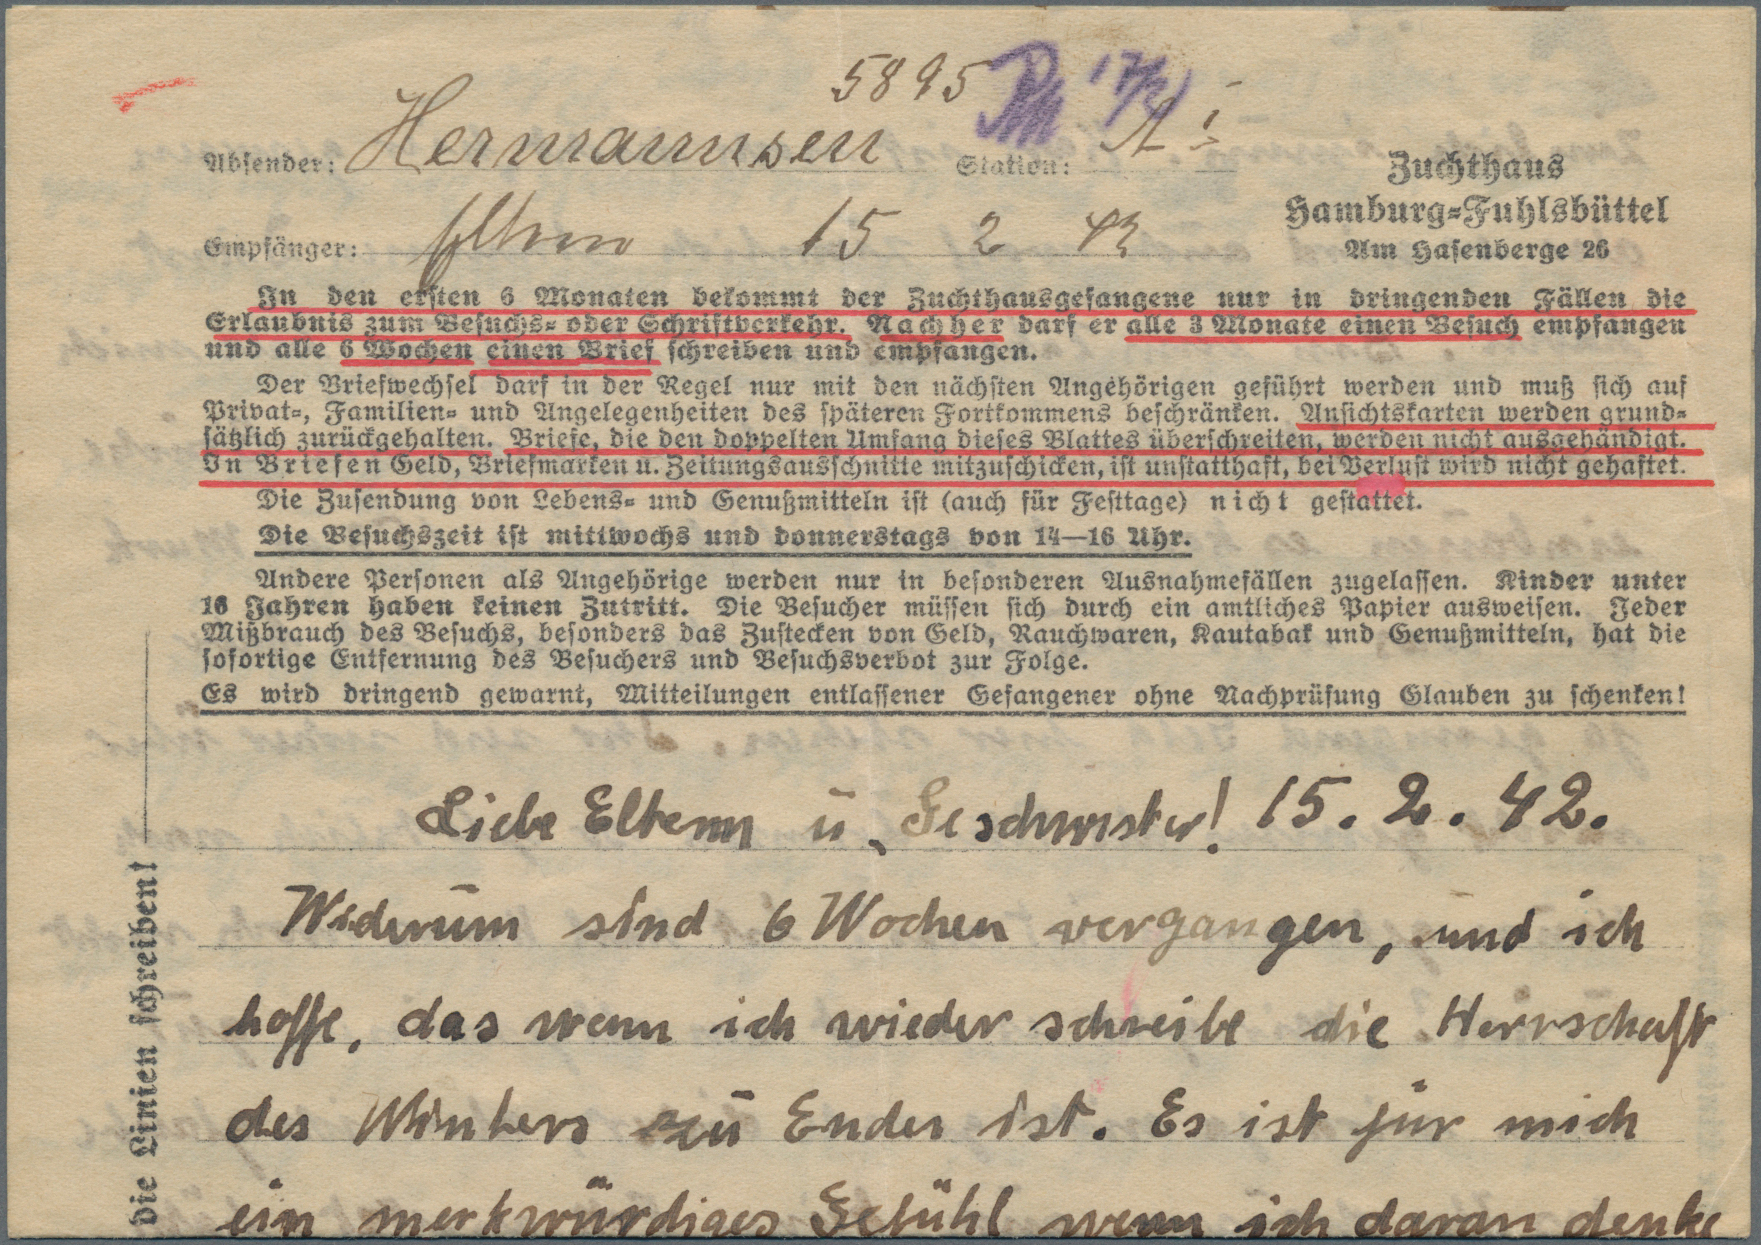 5895
17/2
Absender: Hermannsen Station: A I
Zuchthaus
Hamburg-Fuhlsbüttel
Am Hasenberge 26
Empfänger: Eltern 15 2 42
In den ersten 6 Monaten bekommt der Zuchthausgefangene nur in dringenden Fällen die
Erlaubnis zum Besuchs- oder Schriftverkehr. Nachher darf er alle 3 Monate einen Besuch empfangen
und alle 6 Wochen einen Brief schreiben und empfangen.
Der Briefwechsel darf in der Regel nur mit den nächsten Angehörigen geführt werden und muß sich auf
Privat-, Familien- und Angelegenheiten des späteren Fortkommens beschränken. Ansichtskarten werden grund-
sätzlich zurückgehalten. Briefe, die den doppelten Umfang dieses Blattes überschreiten, werden nicht ausgehändigt.
In Briefen Geld, Briefmarken u. Zeitungsausschnitte mitzuschicken, ist unstatthaft, bei Verlust wird nicht gehaftet.
Die Zusendung von Lebens- und Genußmitteln ist (auch für Festtage) nicht gestattet.
Die Besuchszeit ist mittwochs und donnerstags von 14—16 Uhr.
Andere Personen als Angehörige werden nur in besonderen Ausnahmefällen zugelassen. Kinder unter
16 Jahren haben keinen Zutritt. Die Besucher müssen sich durch ein amtliches Papier ausweisen. Jeder
Mißbrauch des Besuchs, besonders das Zustecken von Geld, Rauchwaren, Kautabak und Genußmitteln, hat die
sofortige Entfernung des Besuchers und Besuchsverbot zur Folge.
Es wird dringend gewarnt, Mitteilungen entlassener Gefangener ohne Nachprüfung Glauben zu schenken!
die Linien schreiben!
Liebe Eltern u. Geschwister! 15. 2. 42.
Widerum sind 6 Wochen vergangen, und ich
hoffe, das wenn ich wieder schreibe die Herrschaft
des Winters zu Ender ist. Es ist für mich
ein merkwürdiges Gefühl wenn ich daran denke